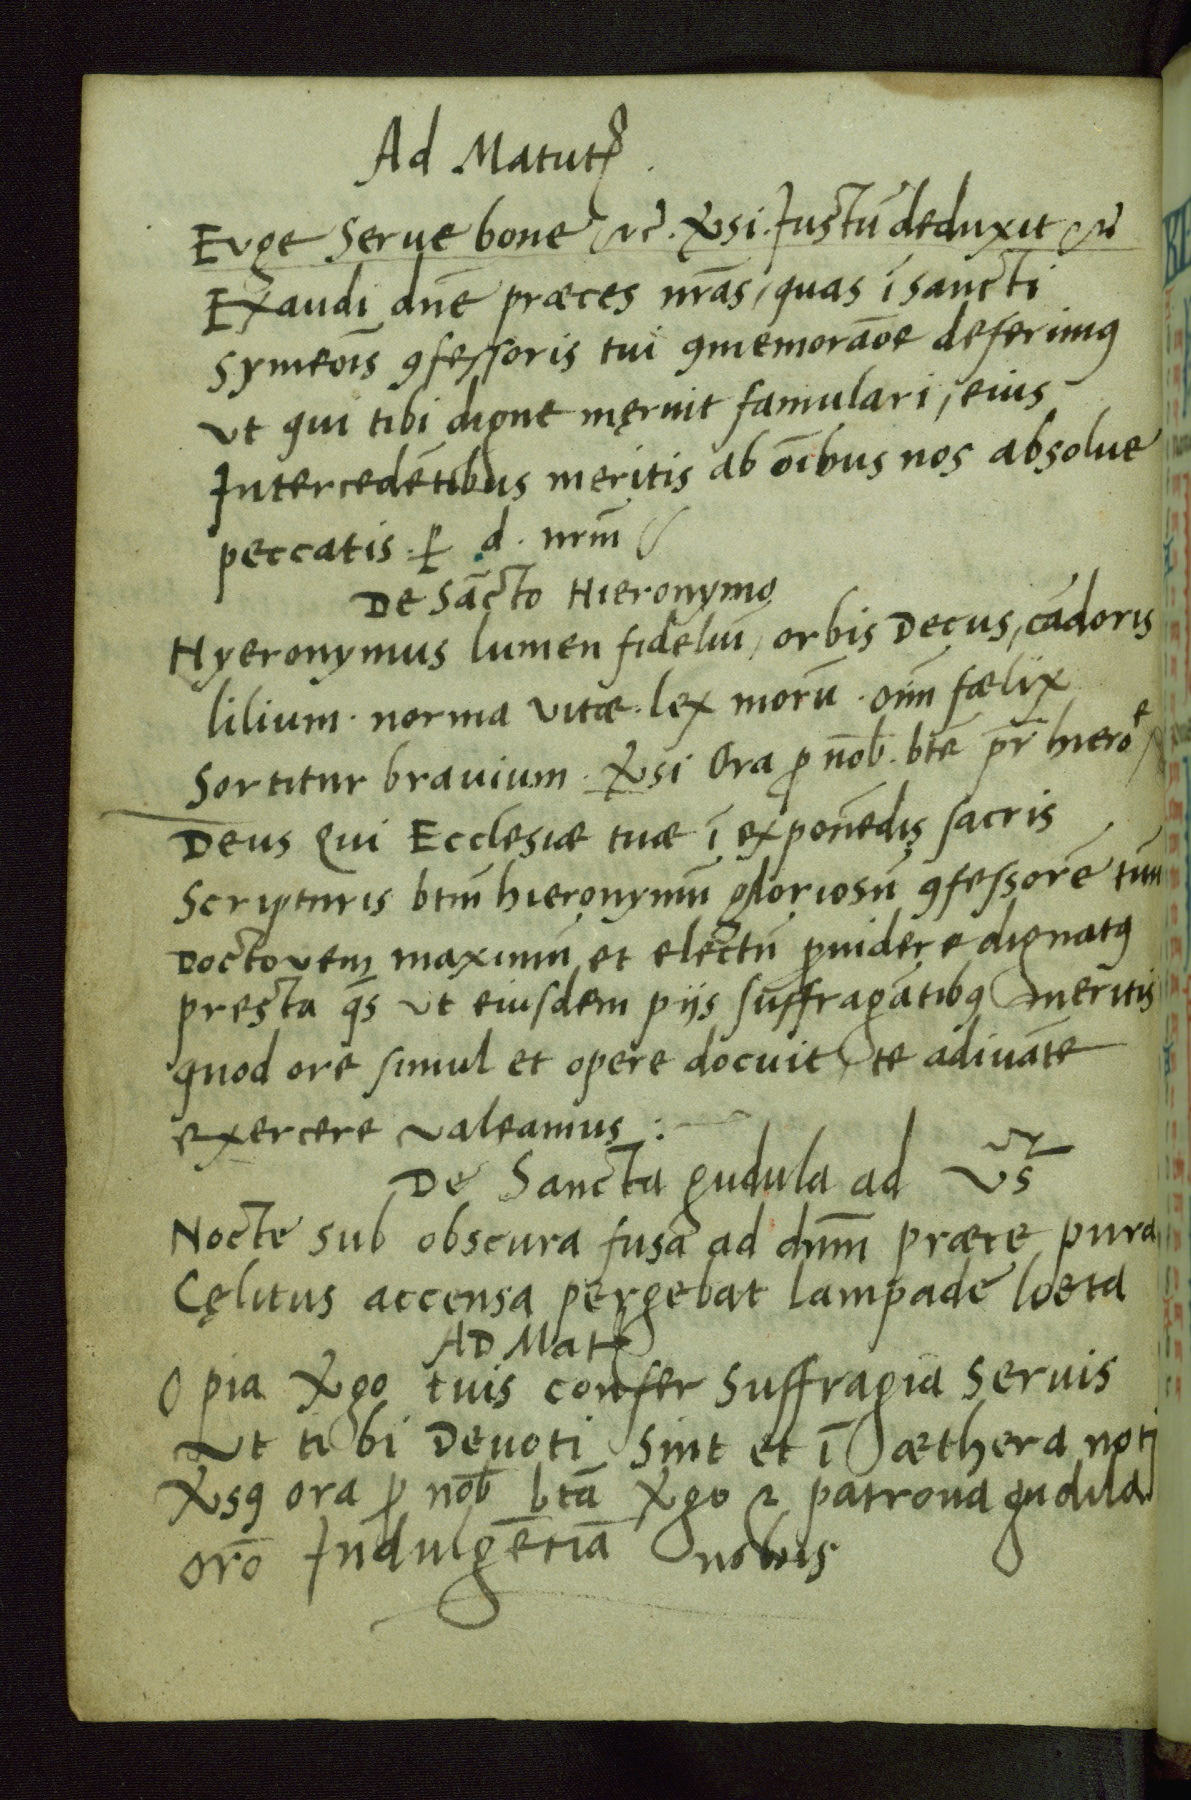 Ad Matutꝭ.
Euge Serue bone ⁊c̃. ℣si. Justũ deduxit ⁊c̃
Exaudi dn̄e præces nr̄as, quas ī sancti
Symeōis ꝯfessoris tui ꝯmemorāoe deferimꝰ
vt qui tibi digne męruit famulari, eius
Intercedētibus meritis ab oībus nos absolue
peccatis. ꝑ d. nrm̄
De Sācto Hieronymo
Hyeronymus lumen fideliū, orbis Decus, cādoris
lilium. norma vitæ. lex morū. oīm fælix
Sortitur brauium. ℣si Ora ꝓ nōb. btē pr̄ hieroe
Deus Qui Ecclesiæ tuæ ī exponēdis sacris
Scripturis btm̄ hieronymū gloriosū ꝯfessorē tuū
Doctorem maximū et electū ꝓuidere dignatꝰ
presta q̄s vt eiusdem pijs suffragātibꝰ meritis
quod ore simul et opere docuit, te adiuāte
exercere valeamus :
De Sancta gudula ad v̄s
Nocte sub obscura fusa ad dnm̄ præce pura
Cęlitus accensa pergebat lampade loeta
AD Matꝭ
O pia ℣go tuis confer suffragia seruis
Vt tibi Deuoti sint et ī æthera noti
℣sꝰ ora ꝓ nōb btā ℣go ⁊ patrona gudila
orō Indulgētiā nobis